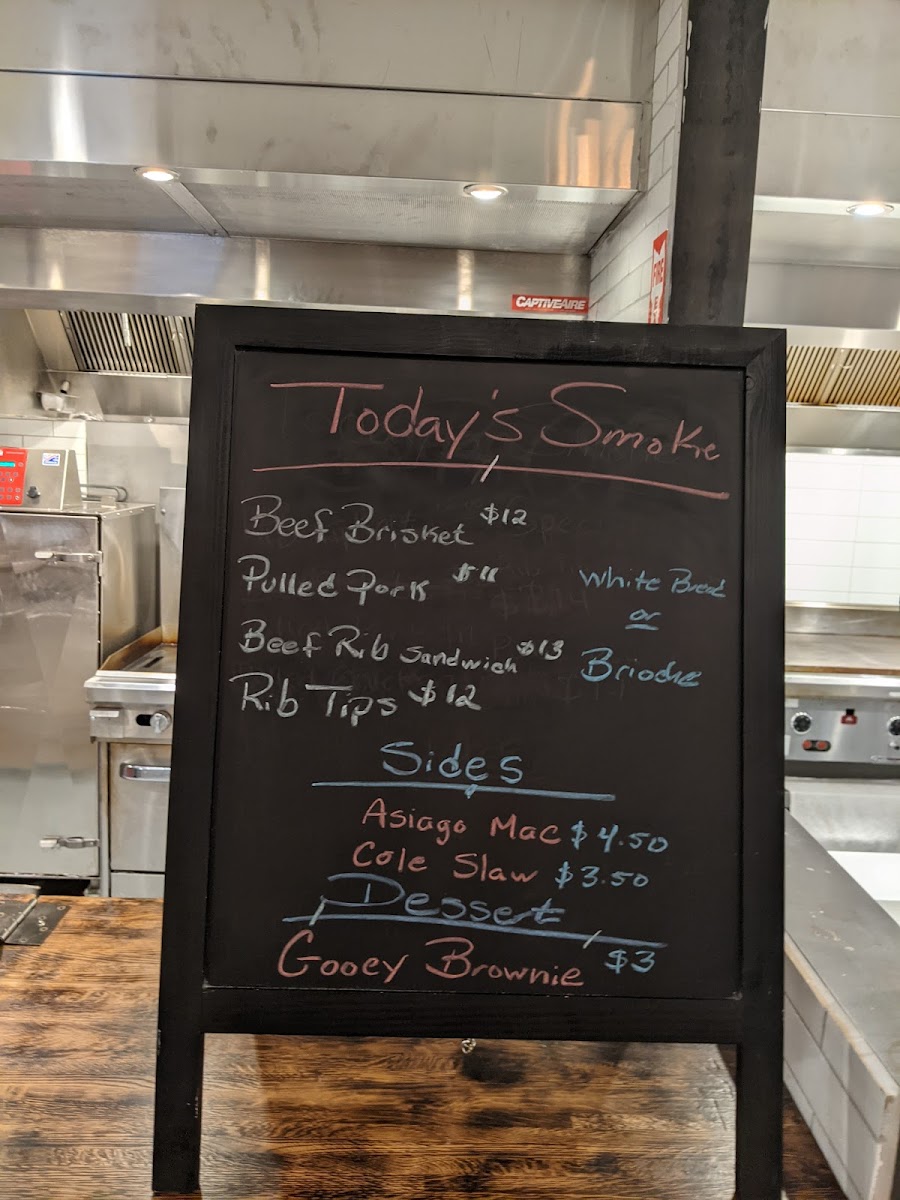 CAPTIVEAIRE
FIRE
Today's Smoke
Beef Brisket $12
Pulled Pork $11
White Bread
or
Brioche
Beef Rib Sandwich $13
Rib Tips $12
Sides
Asiago Mac $4.50
Cole Slaw $3.50
Dessert
Gooey Brownie $3